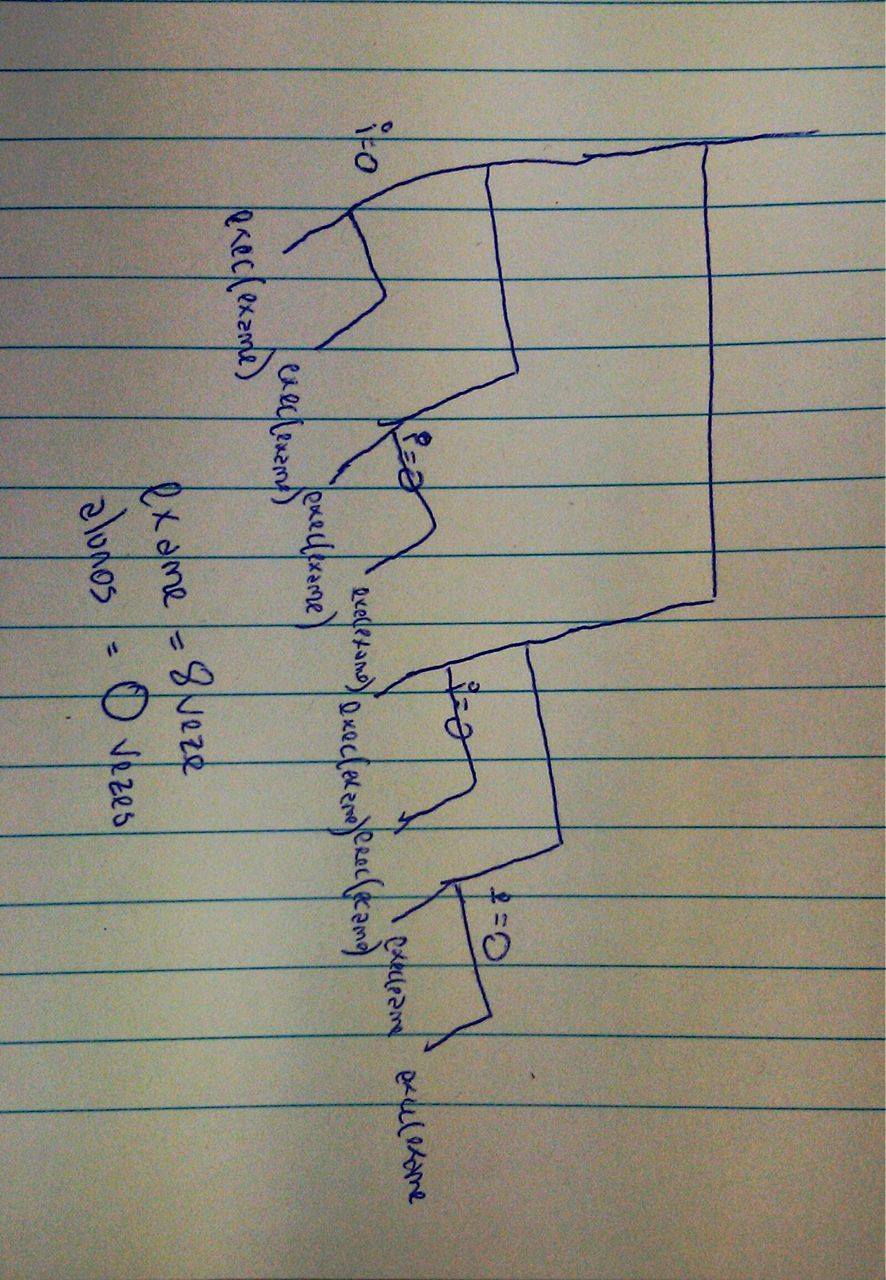 i=0
i=0
i=0
i=0
exec(exame)
exec(exame)
exec(exame)
exec(exame)
exec(exame)
exec(exame)
exec(exame
exec(exame
exame = 8 veze
alunos = 0 vezes